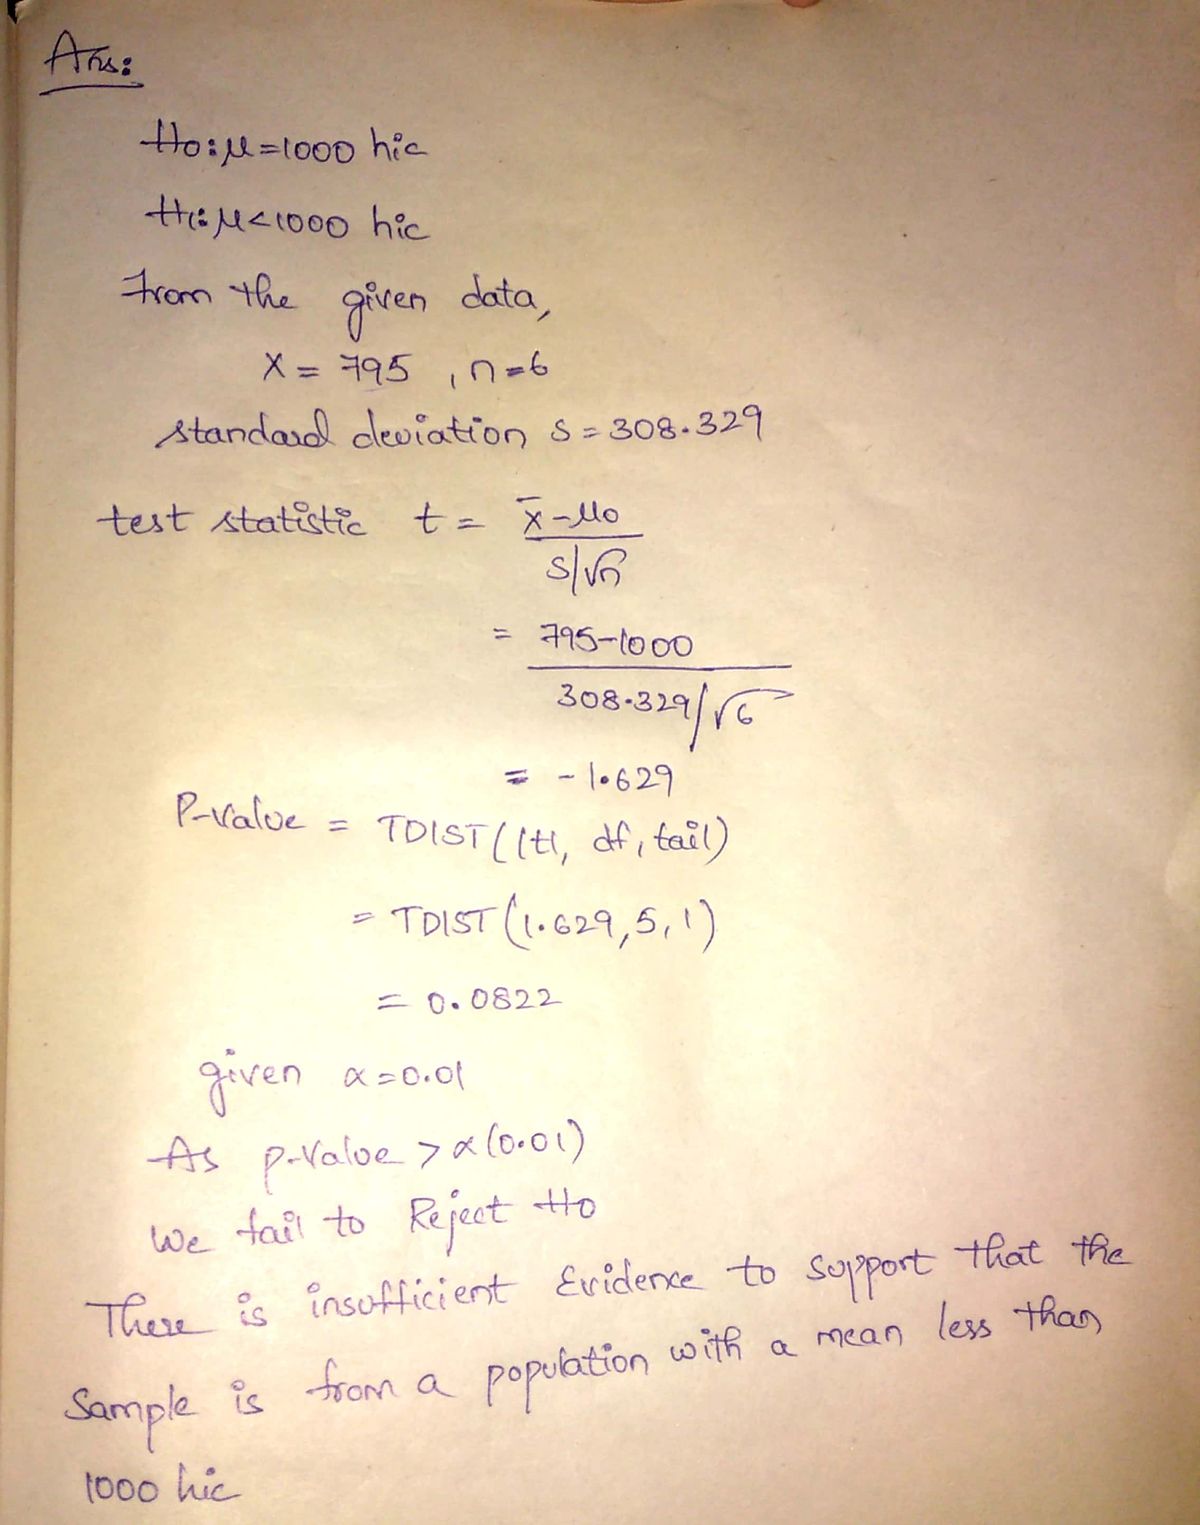 Ans:
H0:μ=1000 hic
H1:μ<1000 hic
From the given data,
X = 795 , n=6
standard deviation s = 308.329
test statistic t = x̄-μ0
s/√n
= 795-1000
308.329/√6
= -1.629
P-value = TDIST(|t|, df, tail)
= TDIST(1.629,5,1)
= 0.0822
given α=0.01
As p-value > α(0.01)
We fail to Reject H0
There is insufficient Evidence to support that the
Sample is from a population with a mean less than
1000 hic